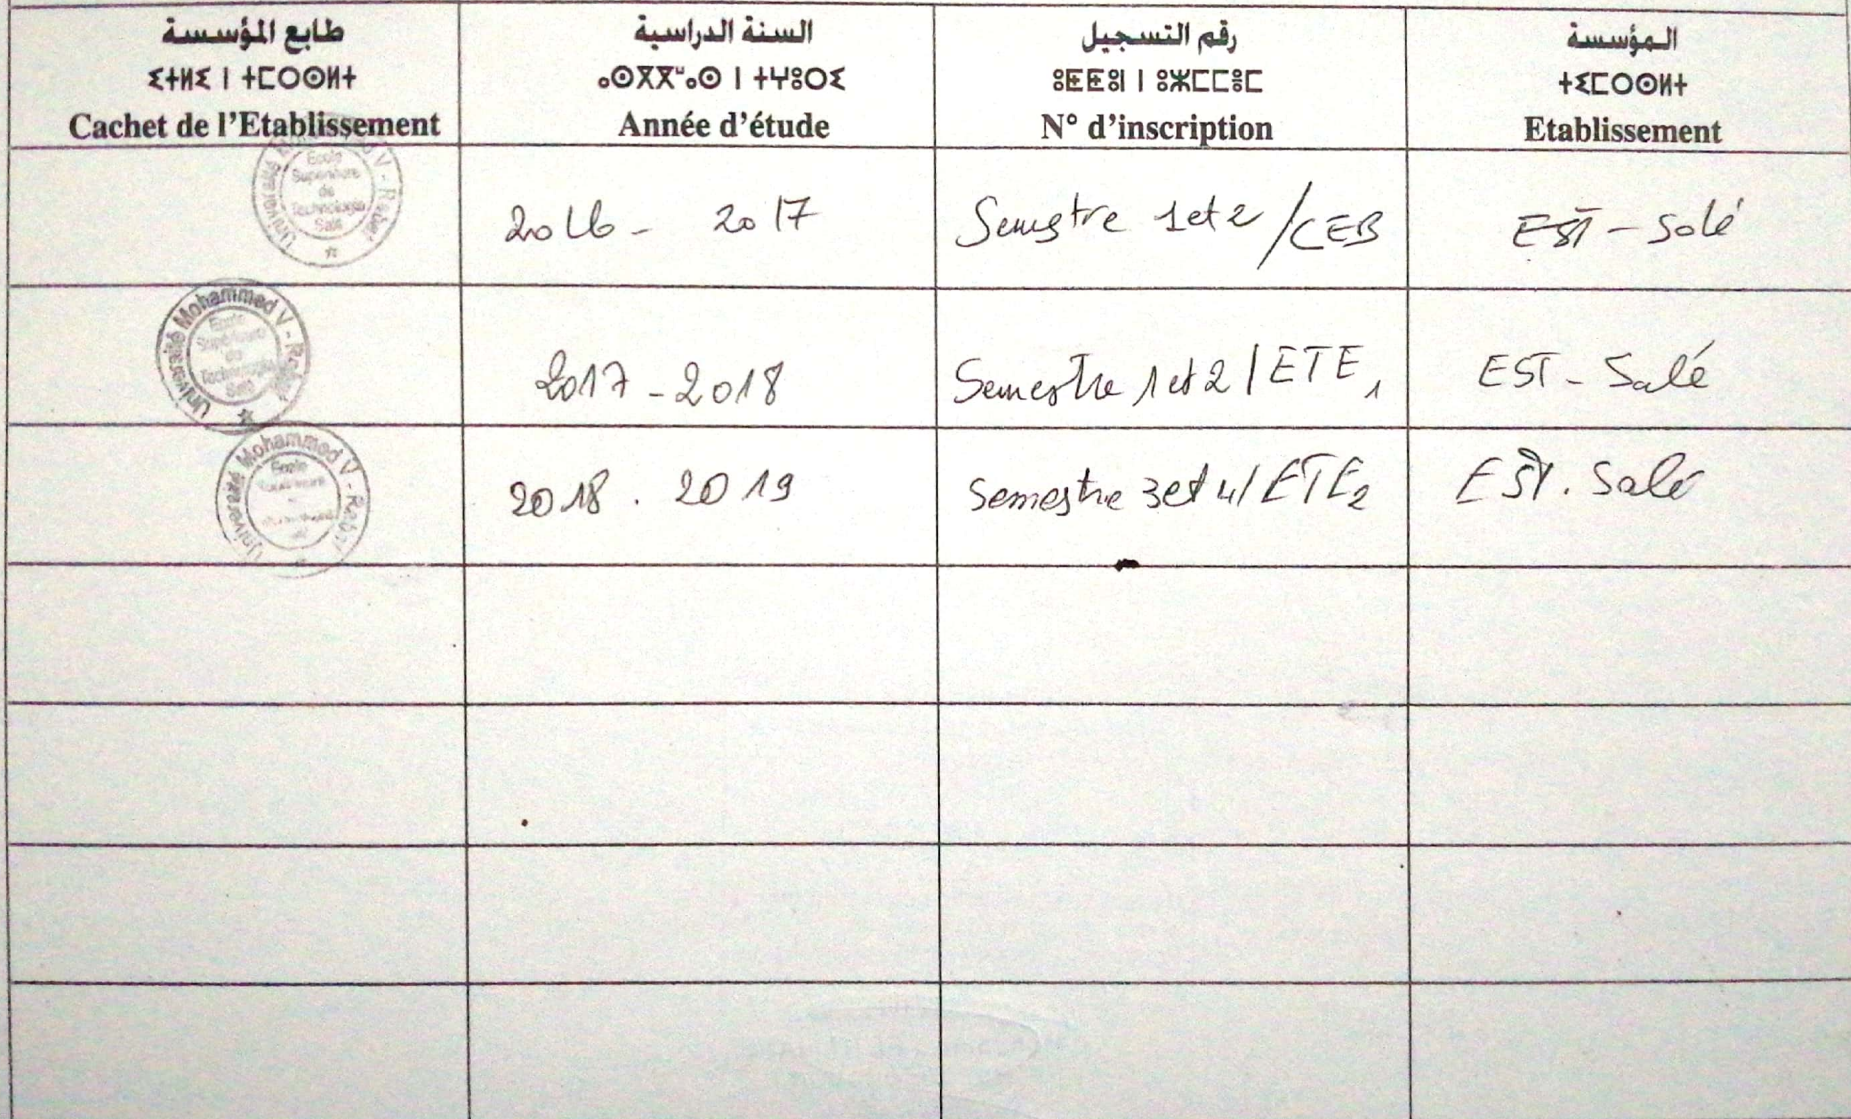 طابع المؤسسة
ⵉⵜⵍⵉ ⵏ ⵜⵎⵔⵙⵍⵜ
Cachet de l'Etablissement
السنة الدراسية
ⴰⵙⴳⴳⵯⴰⵙ ⵏ ⵜⵖⵓⵔⵉ
Année d'étude
رقم التسجيل
ⵓⵟⵟⵓⵏ ⵏ ⵓⵣⵎⵎⵎⴻⵎ
N° d'inscription
المؤسسة
ⵜⵉⵎⵔⵙⵍⵜ
Etablissement
Université Mohammed V - Rabat
Ecole
Supérieure
de
Technologie
Salé
2016 - 2017
Semestre 1 et 2 / CEB
EST - Salé
Université Mohammed V - Rabat
Ecole
Supérieure
de
Technologie
Salé
2017 - 2018
Semestre 1 et 2 / ETE 1
EST - Salé
Université Mohammed V - Rabat
Ecole
2018 . 2019
Semestre 3 et 4 / ETE2
EST . Salé